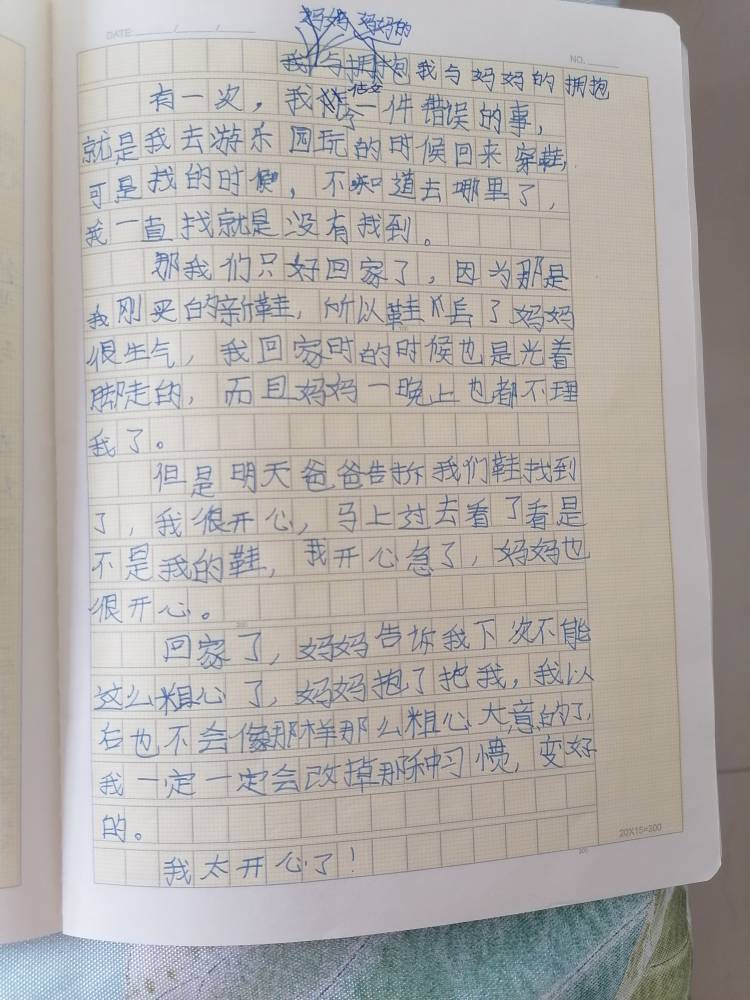 DATE / /
妈妈 妈妈的
NO.
我与拥抱我与妈妈的拥抱
有一次，我做了一件错误的事，
就是我去游乐园玩的时候回来穿鞋，
可是找的时候，不知道去哪里了，
我一直找就是没有找到。
那我们只好回家了，因为那是
我刚买的新鞋，所以鞋丢了妈妈
很生气，我回家时的时候也是光着
脚走的，而且妈妈一晚上也都不理
我了。
但是明天爸爸告拆我们鞋找到
了，我很开心，马上过去看了看是
不是我的鞋，我开心急了，妈妈也
很开心。
回家了，妈妈告诉我下次不能
这么粗心了，妈妈抱了把我，我以
后也不会像那样那么粗心大意的了，
我一定一定会改掉那种习惯，变好
的。
20X15=300
我太开心了！